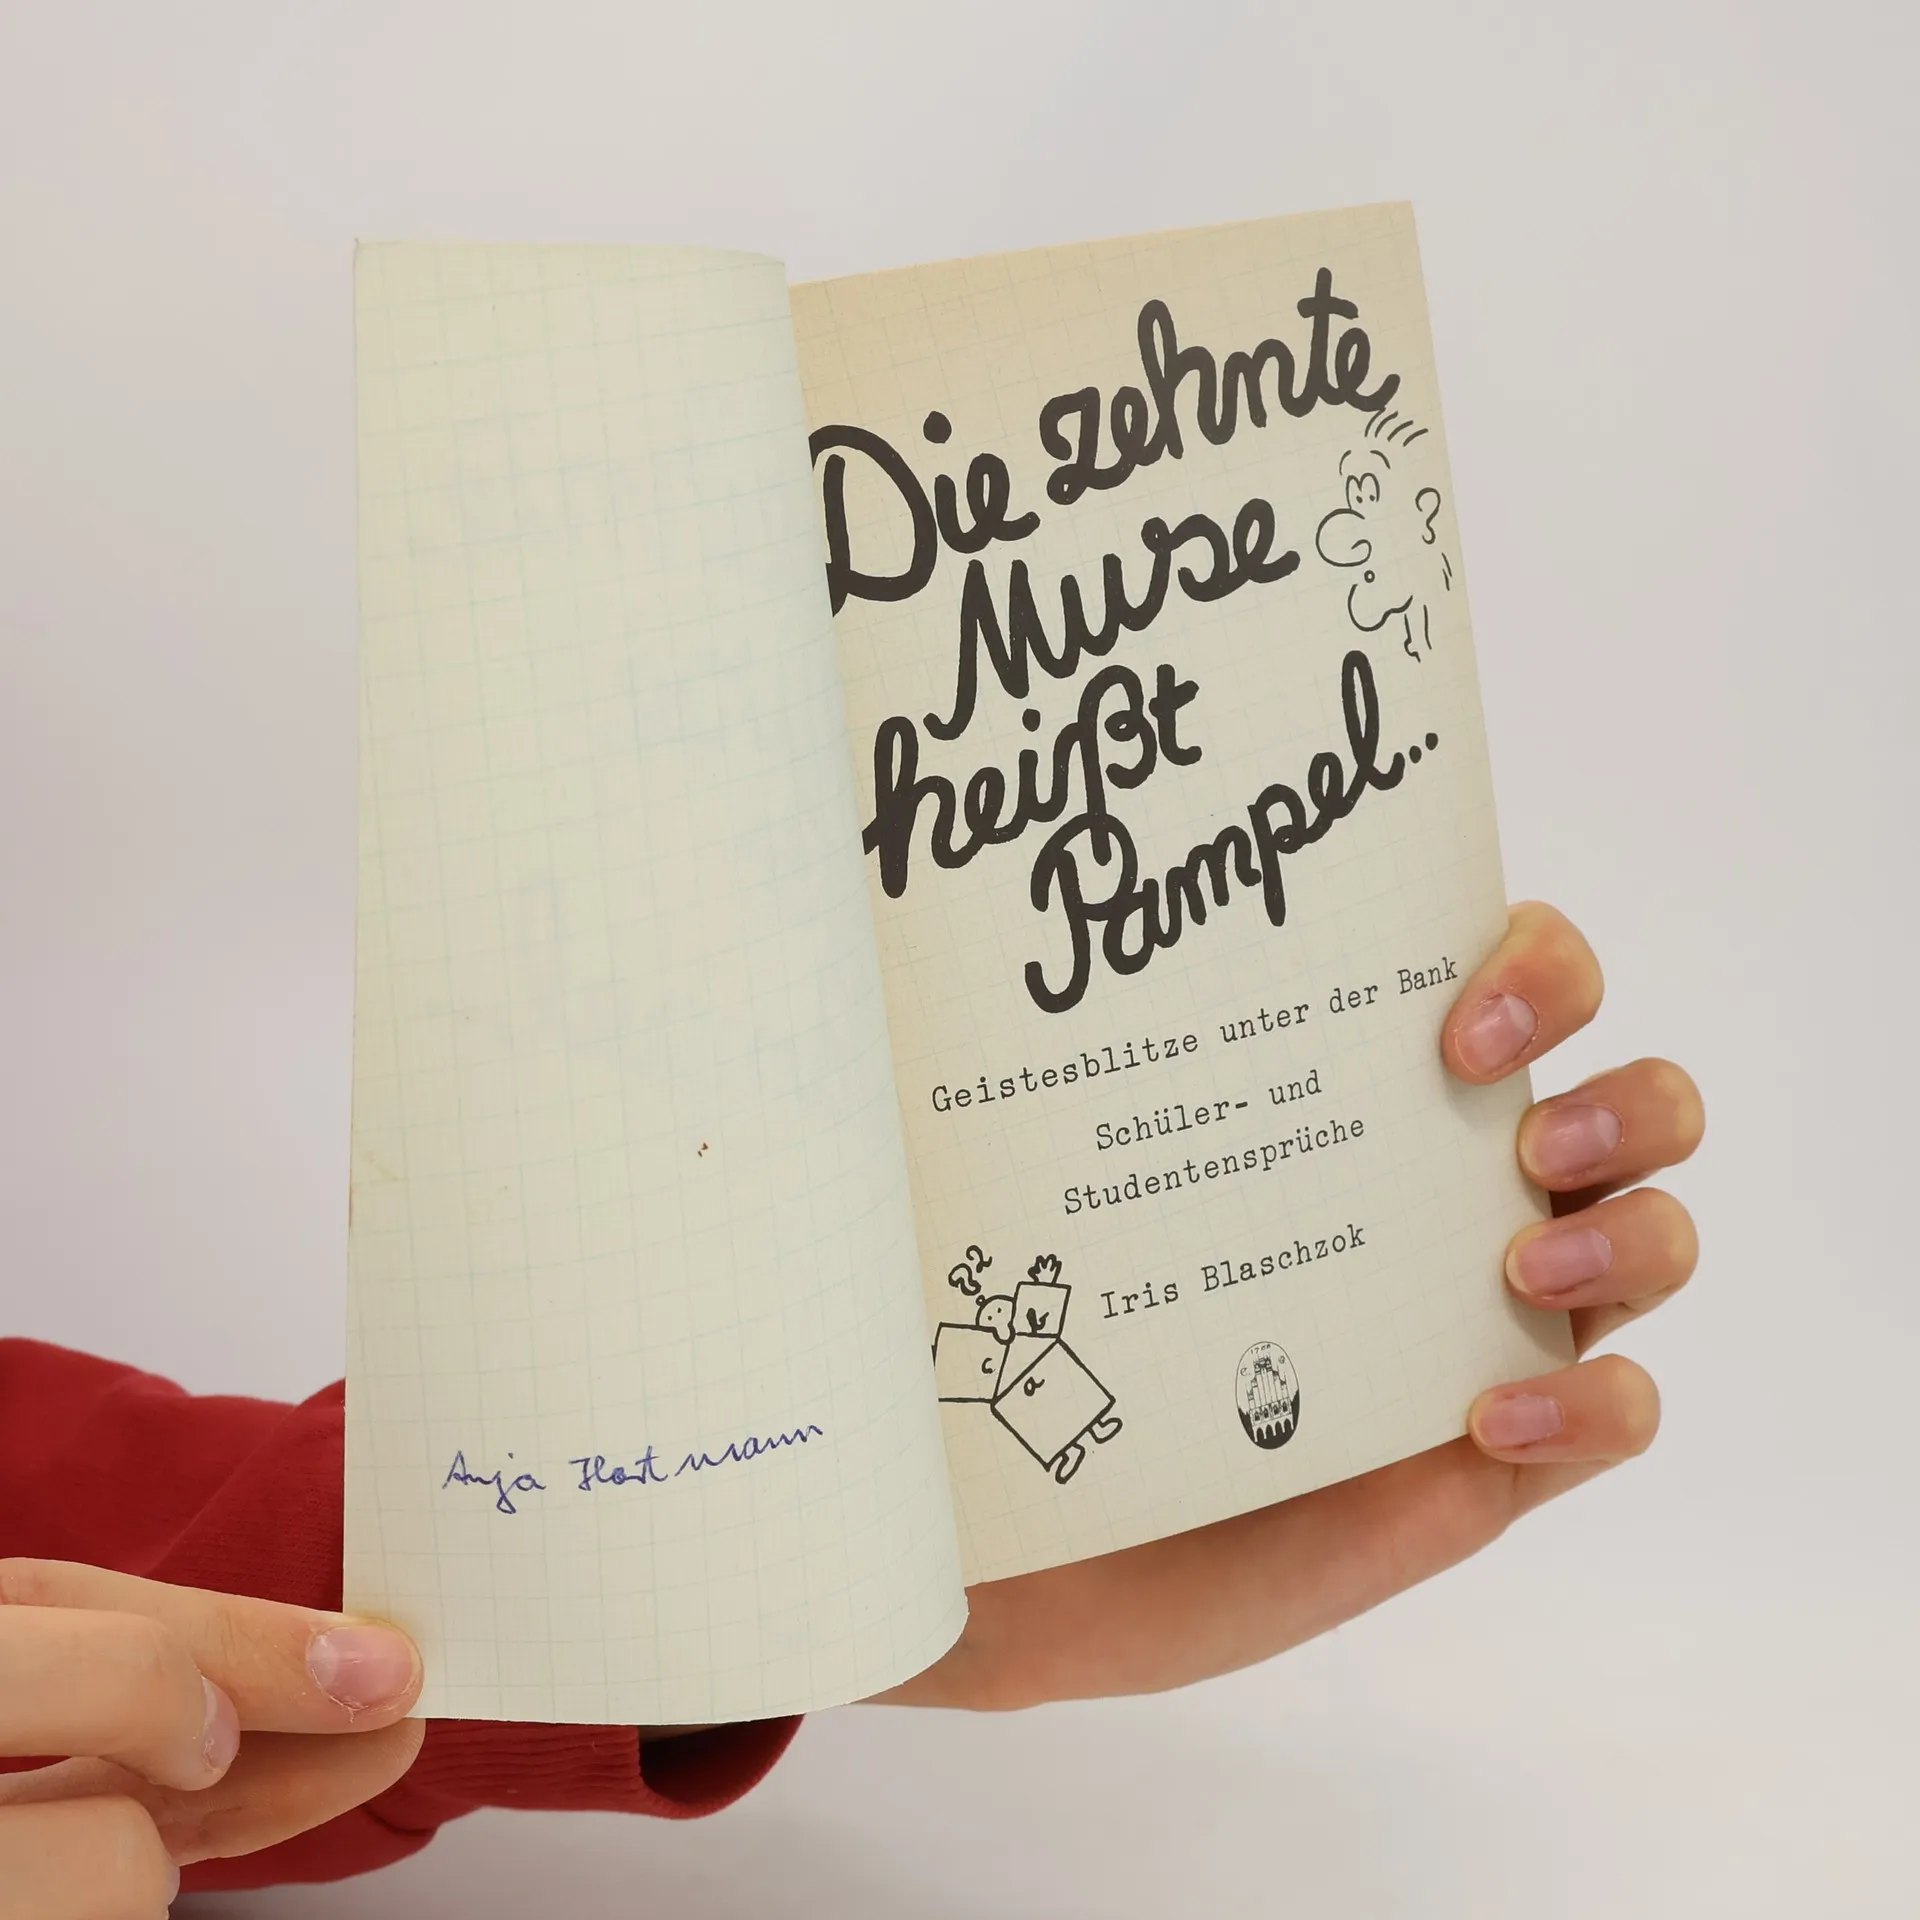 Anja Hartmann
Die zehnte
Muse
heißt
Pampel..
Geistesblitze unter der Bank
Schüler- und
Studentensprüche
Iris Blaschzok
c
a